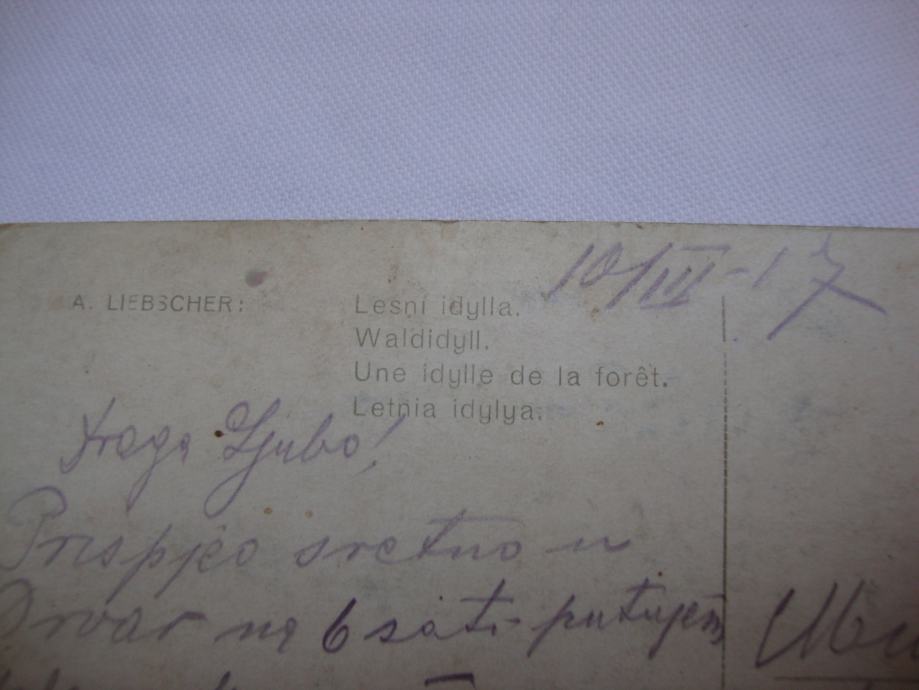 10/III-17
A. LIEBSCHER:
Lesní idylla.
Waldidyll.
Une idylle de la forêt.
Letnia idylya.
Draga Ljubo!
Prispjeo sretno u
Drvar na 6 sati putujem